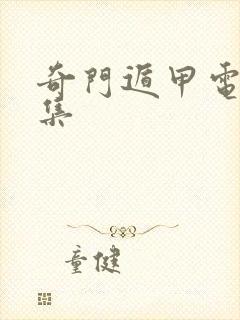 奇門遁甲電
集
童健